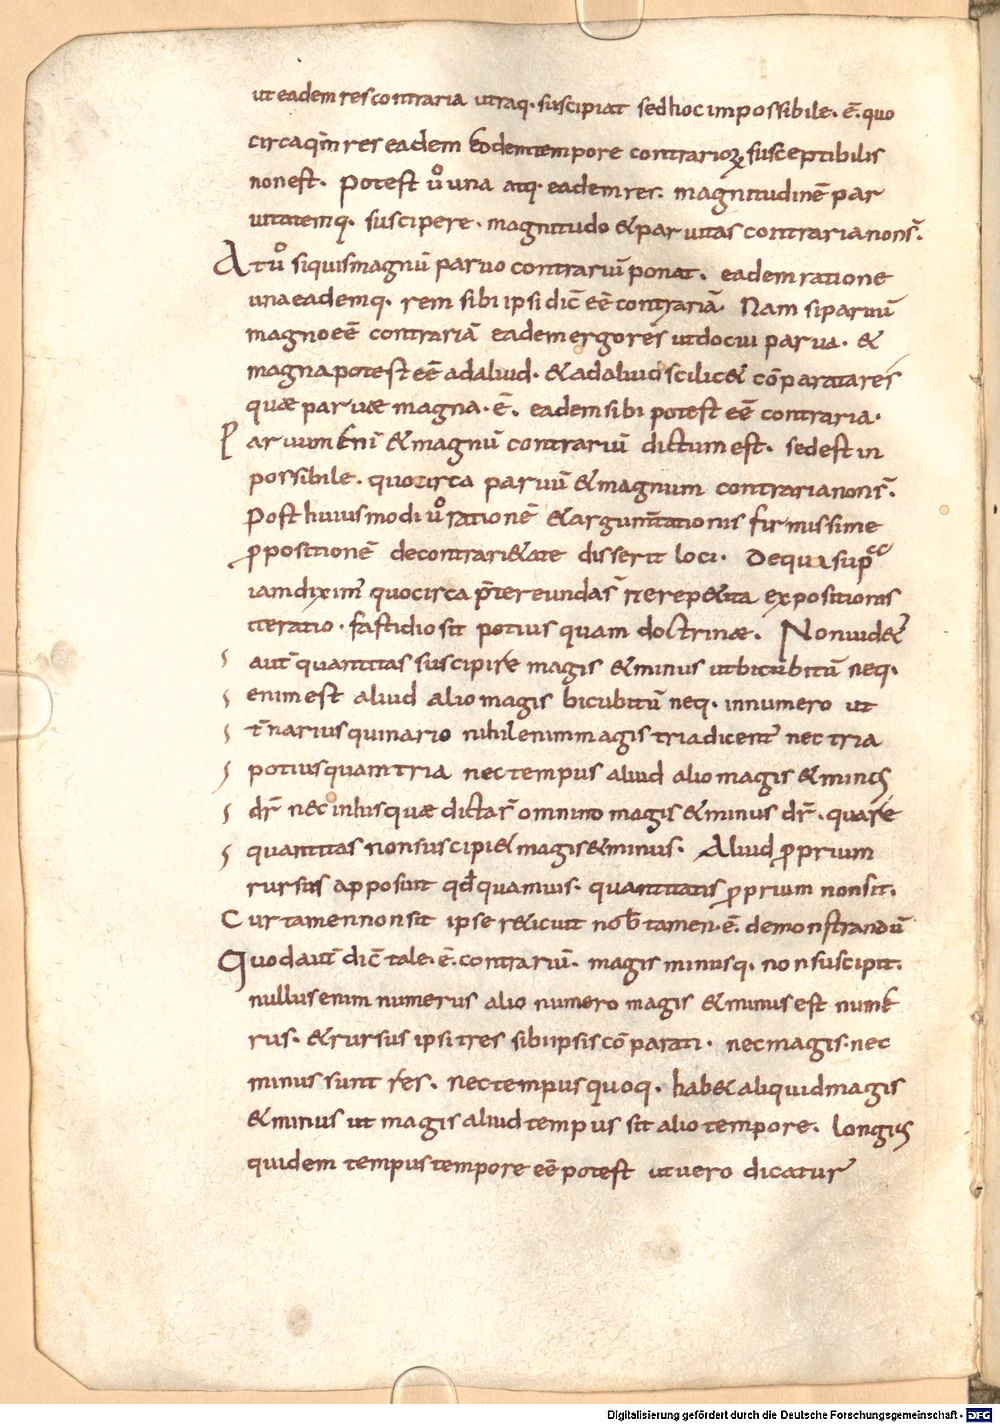 ut eadem res contraria utraq· suscipiat sed hoc impossibile· ē· quo
circa qm̄ res eadem eodem tempore contrarioꝝ susceptibilis
non est· Potest ůo una atq· eadem res· magnitudinē par
uitatemq· suscipere· magnitudo & paruitas contraria non s̄·
At ůo si quis magnū paruo contrariū ponat· eadem ratione
una eademq· rem sibi ipsi dic̄ eē contrariā· Nam si paruū
magno eē contrariā eadem ergo res ut docui parua· &
magna potest eē ad aliud· & ad aliud scilic& cōparata res
quæ paruæ magna· ē· eadem sibi potest eē contraria·
Paruum eni & magnū contrariū dictum est· sed est in
possibile· quocirca paruū & magnum contraria non s̄·
Post huiusmodi ůo rationē & argum̄tationis firmissime
ꝓpositionē de contrari&ate disserit loci· De qua sup̄
iam diximꝰ quocirca p̄tereunda s̄ ne rep&ita expositionis
iteratio· fastidio sit potius quam doctrinæ· Non uid&ᷣ
aut̄ quantitas suscipire magis & minus ut bicubitū neq·
enim est aliud alio magis bicubitū neq· in numero ut
t̄narius quinario nihil enim magis tria dicentᷣ nec tria
potius quam tria nec tempus aliud alio magis & minus
dr̄ nec in his quæ dicta s̄ omnino magis & minus dr̄· quare
quantitas non suscipi& magis & minus· Aliud ꝓprium
rursus apposuit qđ quamuis· quantitatis ꝓprium non sit·
Cur tamen non sit ipse r&icuit nob̄ tamen· ē· demonstrandū
Quod aut̄ dic̄ tale· ē· contrariū· magis minusq· non suscipit·
nullus enim numerus alio numero magis & minus est nume
rus· & rursus ipsi tres sibi ipsis cōparati· nec magis· nec
minus sunt res· nec tempus quoq· hab& aliquid magis
& minus ut magis aliud tempus sit alio tempore· longius
quidem tempus tempore eē potest ut uero dicatur
Digitalisierung gefördert durch die Deutsche Forschungsgemeinschaft - DFG